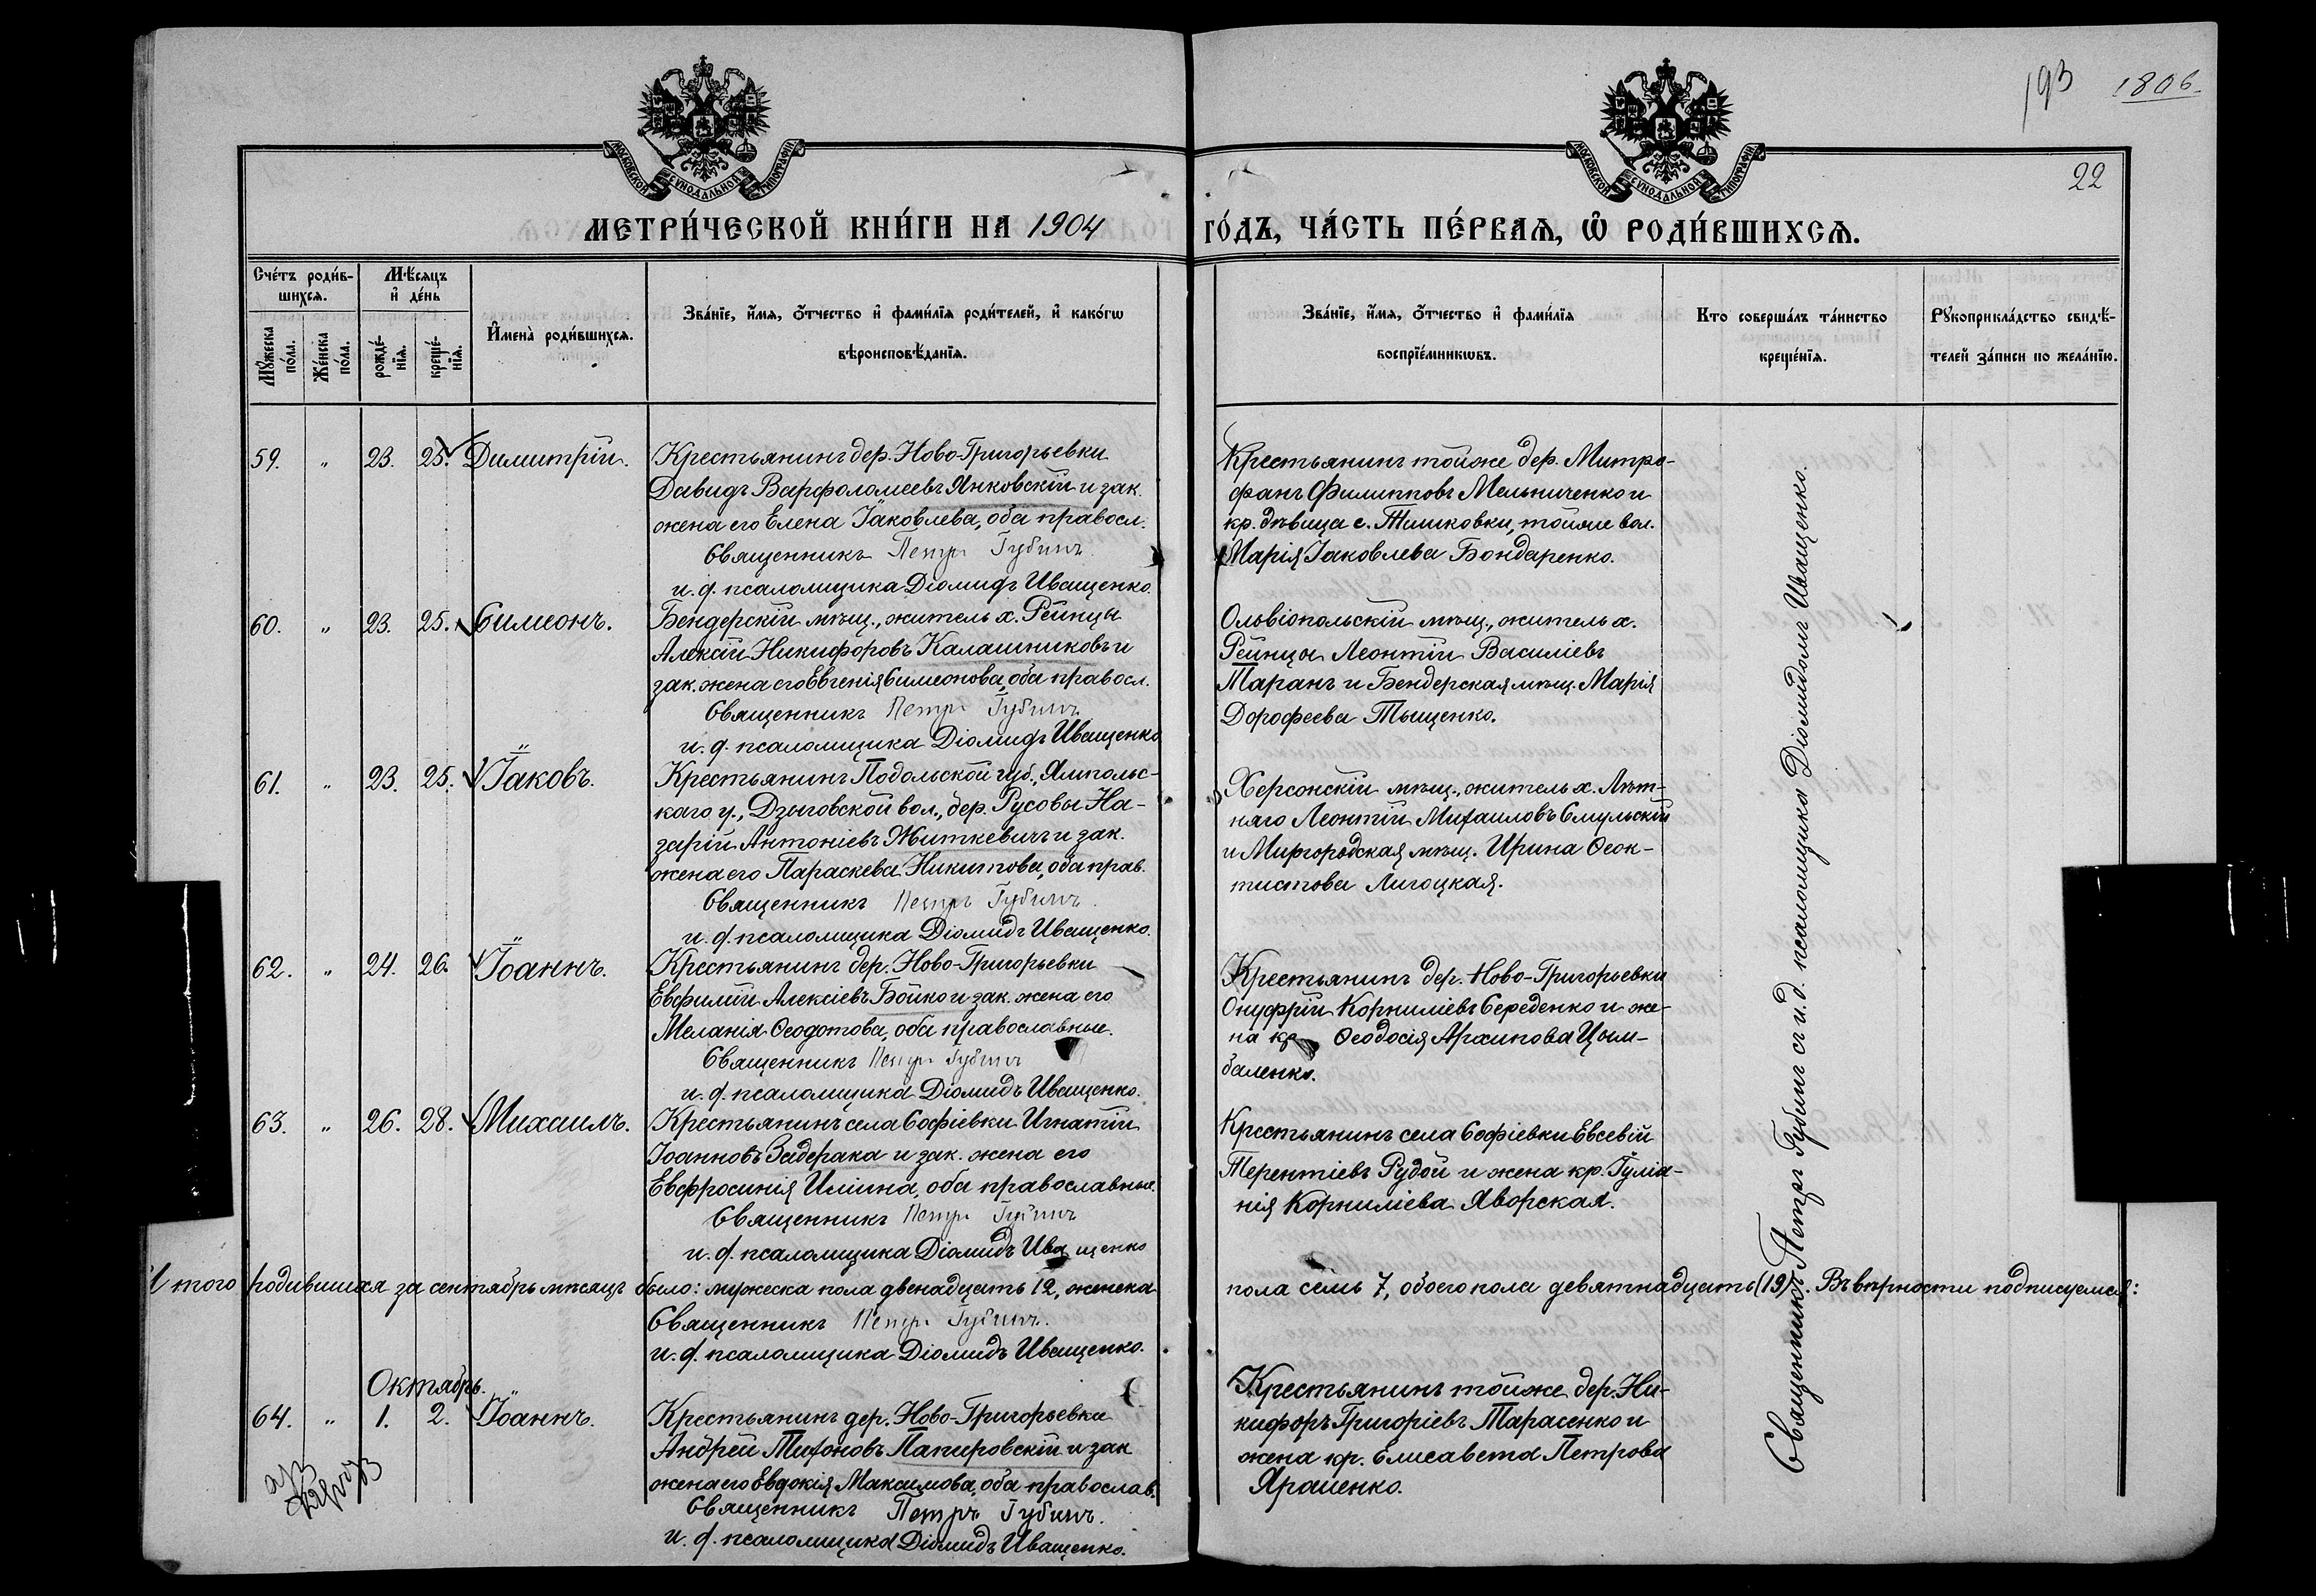 193 1806
22
МОСКОВСКОЙ СѴНОДАЛЬНОЙ ТИПОГРАФІИ
МОСКОВСКОЙ СѴНОДАЛЬНОЙ ТИПОГРАФІИ
МЕТРИ́ЧЕСКОЙ КНИ́ГИ НА 1904 ГО́ДЪ, ЧА́СТЬ ПЕ́РВАѦ, Ѡ҆ РОДИ́ВШИХСѦ.
Сче́тъ роди́в-
шихсѧ.
Мꙋ́жеска
по́ла.
Же́нска
по́ла.
Мѣ́сѧцъ
и҆ де́нь
рожде́-
нїѧ.
креще́-
нїѧ.
И҆мена̀ роди́вшихсѧ.
Зва́нїе, и҆́мѧ, ѻ҆́тчество и҆ фами́лїѧ роди́телей, и҆ како́гѡ
вѣроисповѣ́данїѧ.
Зва́нїе, и҆́мѧ, ѻ҆́тчество и҆ фами́лїѧ
воспрїе́мникѡвъ.
Кто соверша́лъ та́инство
креще́нїѧ.
Рꙋкоприкла́дство свидѣ́-
телей за́писи по жела́нїю.
59. " 23. 25. Димитрій.
Крестьянинъ дер. Ново-Григорьевки
Давидъ Варфоломеевъ Янковскій и зак.
жена его Елена Іаковлева, оба правосл.
Священникъ Петръ Губинъ
и. д. псаломщика Діомидъ Иващенко.
Крестьянинъ тойже дер. Митро-
фанъ Филипповъ Мельниченко и
кр. дѣвица с. Тишковки, тойже вол.
Марія Іаковлева Бондаренко.
60. " 23. 25. Симеонъ.
Бендерскій мѣщ., житель х. Рейнцы
Алексій Никифоровъ Калашниковъ и
зак. жена его Евгенія Симеонова, оба правосл.
Священникъ Петръ Губинъ
и. д. псаломщика Діомидъ Иващенко
Ольвіопольскій мѣщ., житель х.
Рейнцы Леонтій Василіевъ
Таранъ и Бендерская мѣщ. Марія
Дорофеева Тыщенко.
61. " 23. 25. Іаковъ.
Крестьянинъ Подольской губ., Ямпольс-
каго у., Дзыговской вол., дер. Русовы На-
зарій Антоніевъ Житкевичъ и зак.
жена его Параскева Никитова, оба прав.
Священникъ Петръ Губинъ.
и. д. псаломщика Діомидъ Иващенко.
Херсонскій мѣщ., житель х. Лѣт-
няго Леонтій Михаиловъ Смульскій
и Миргородская мѣщ. Ирина Ѳеок-
тистова Лигоцкая.
62. " 24. 26. Іоаннъ.
Крестьянинъ дер. Ново-Григорьевки
Евфимій Алексіевъ Бойко и зак. жена его
Меланія Ѳеодотова, оба православные.
Священникъ Петръ Губинъ
и. д. псаломщика Діомидъ Иващенко.
Крестьянинъ дер. Ново-Григорьевки
Онуфрій Корниліевъ Середенко и же-
на кр. Ѳеодосія Архипова Цым-
баленко.
63. " 26. 28. Михаилъ.
Крестьянинъ села Софіевки Игнатій
Іоанновъ Задерака и зак. жена его
Евфросинія Иліина, оба православные.
Священникъ Петръ Губинъ
и. д. псаломщика Діомидъ Иващенко
Крестьянинъ села Софіевки Евсевій
Терентіевъ Рудой и жена кр. Іуліа-
нія Корниліева Яворская.
Итого родившихся за сентябрь мѣсяцъ было: мужеска пола двенадцать 12, женска пола семь 7, обоего пола девятнадцать (19). Въ вѣрности подписуемся:
Священникъ Петръ Губинъ.
и. д. псаломщика Діомидъ Иващенко.
Октябрь.
64. " 1. 2. Іоаннъ.
Крестьянинъ дер. Ново-Григорьевки
Андрей Тихоновъ Папировскій и зак
жена его Евдокія Максимова, оба православ.
Священникъ Петръ Губинъ.
и. д. псаломщика Діомидъ Иващенко.
Крестьянинъ тойже дер. Ни-
кифоръ Григоріевъ Тарасенко и
жена кр. Елисавета Петрова
Ярошенко.
Священникъ Петръ Губинъ съ и. д. псаломщика Діомидомъ Иващенко.